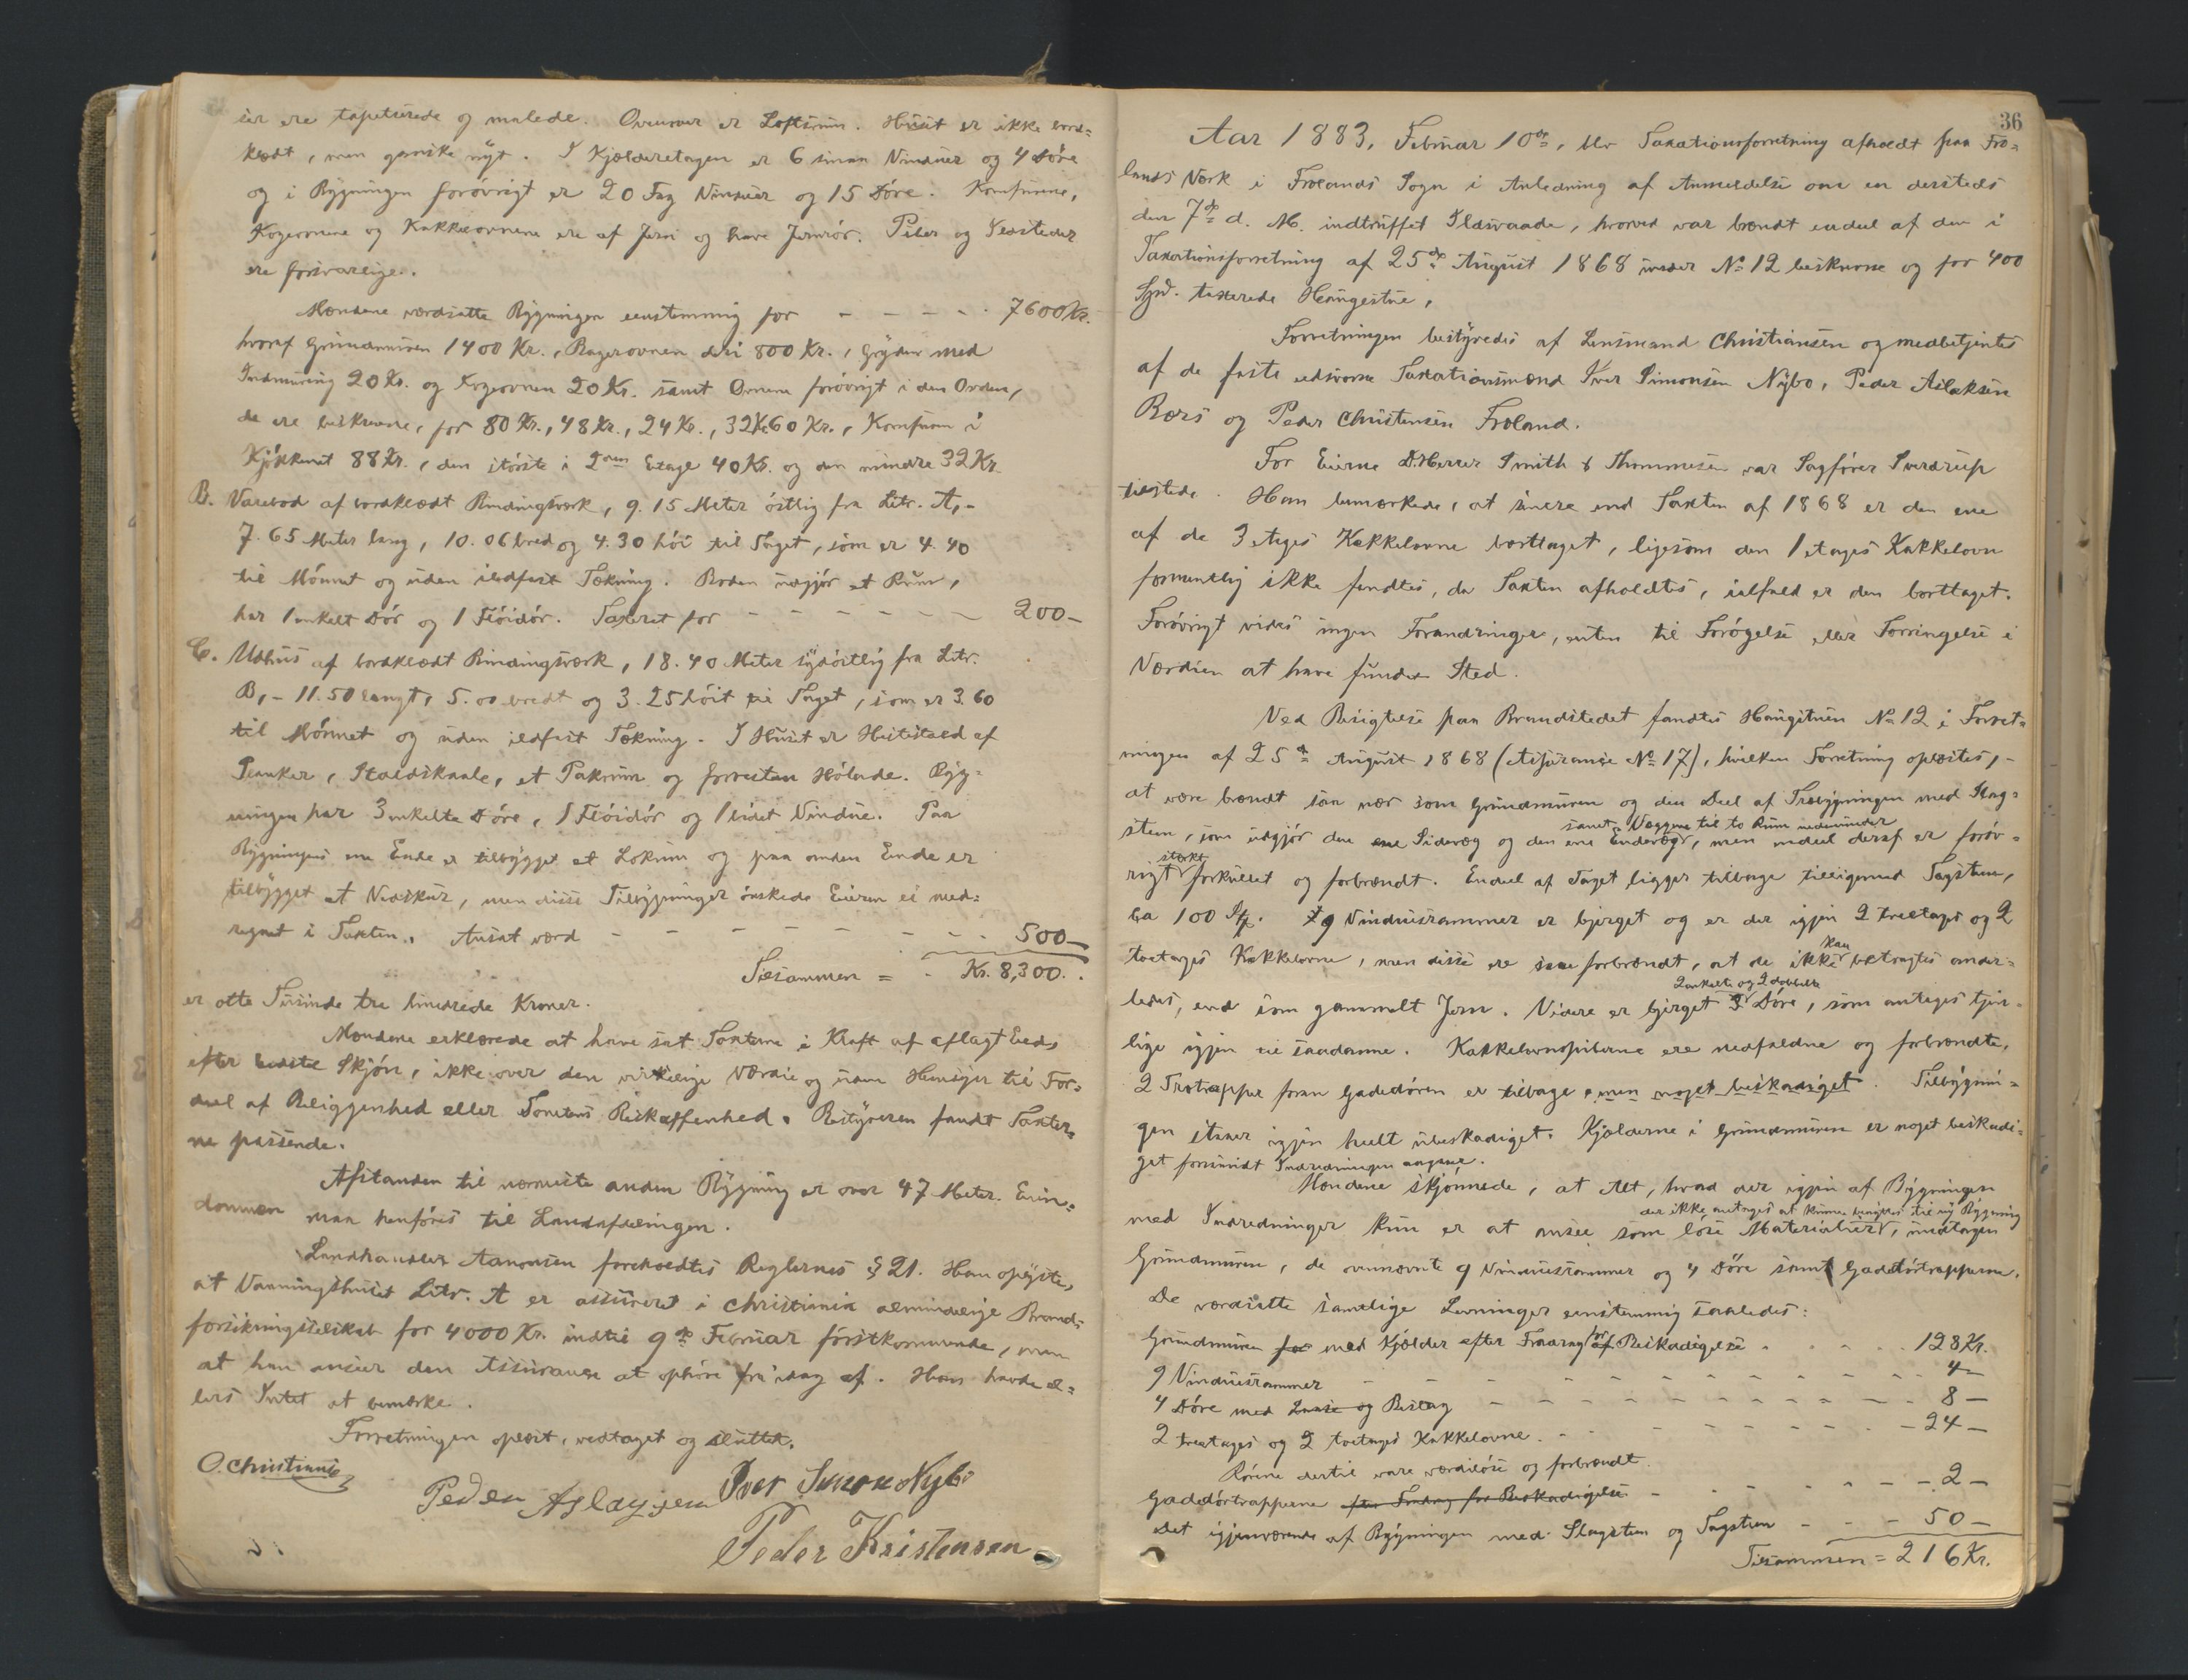 ser ere tapetserede og malede. Ovenover er Loftsrum. Huset er ikke bord-
klædt, men ganske nyt. I Kjælderetagen er 6 smaa Vinduer og 4 Døre
og i Bygningen forøvrigt er 20 Fag Vinduer og 15 Døre. Komfurene,
Kogeovnene og Kakkelovnene ere af Jern og have Jernrør. Piber og Ildsteder
ere forsvarlige.
Mændene værdsatte Bygningen eenstemmig for - - - - - 7600 Kr.
hvoraf Grundmuren 1400 Kr., Bagerovnen deri 800 Kr., Gryden med
Indmuring 20 Kr. og Kogeovnen 20 Kr. samt Ovnene forøvrigt i den Orden,
de ere beskrevne, for 80 Kr., 48 Kr., 24 Kr., 32 Kr. 60 Kr., Komfuren i
Kjøkkenet 88 Kr., den største i 2den Etage 40 Kr. og den mindre 32 Kr.
B. Varebod af bordklædt Bindingsværk, 9.15 Meter østlig fra Litr. A, -
7.65 Meter lang, 10.06 bred og 4.30 høi til Taget, som er 4.40
til Mønnet og uden ildfast Tækning. Boden udgjør et Rum,
har 1 enkelt Dør og 1 Fløidør. Taxeret for - - - - - - 200 -
C. Udhus af bordklædt Bindingsværk, 18.40 Meter sydøstlig fra Litr.
B, - 11.50 langt, 5.00 bredt og 3.25 høit til Taget, som er 3.60
til Mønnet og uden ildfast Tækning. I Huset er Hestestald af
Planker, Staldskaale, et Pakrum og forresten Hølade. Byg-
ningen har 3 enkelte Døre, 1 Fløidør og 1 lidet Vindue. Paa
Bygningens ene Ende er tilbygget et Lokum og paa anden Ende er
tilbygget et Vedskur, men disse Tilbygninger ønskede Eieren ei med-
regnet i Taxten. Ansat værd - - - - - - - - 500 -
Tilsammen = - Kr. 8,300.
er otte Tusinde tre hundrede Kroner.
Mændene erklærede at have sat Taxterne i Kraft af aflagt Eed,
efter bedste Skjøn, ikke over den virkelige Værdie og uden Hensyn til For-
deel af Beliggenhed eller Tomtens Beskaffenhed. Bestyreren fandt Taxter-
ne passende.
Afstanden til nærmeste anden Bygning er over 47 Meter. Eien-
dommen maa henføres til Landafdelingen.
Landhandler Aanonsen foreholdtes Reglernes § 21. Han oplyste,
at Vaaningshuset Litr. A er assureret i Christiania almindelige Brand-
forsikringsselskab for 4000 Kr. indtil 9de Februar førstkommende, men
at han anseer den Assurance at ophøre fra idag af. Han havde el-
lers Intet at bemærke.
Forretningen oplæst, vedtaget og sluttet.
O. Christiansen
Peder Aslaksen Iver Simon Nybo
Peder Kristensen
36
Aar 1883, Februar 10de, blev Taxationsforretning afholdt paa Fro-
lands Værk i Frolands Sogn i Anledning af Anmeldelse om en dersteds
den 7de d. M. indtruffet Ildsvaade, hvorved var brændt endeel af den i
Taxationsforretning af 25de August 1868 under No 12 beskrevne og for 400
Spd. taxerede Haugestue,
Forretningen bestyredes af Lensmand Christiansen og medbetjentes
af de faste edsvorne Taxationsmænd Iver Simonsen Nybo, Peder Aslaksen
Bors og Peder Christensen Froland.
For Eierne D'Herrer Smith & Thommesen var Sagfører Sverdrup
tilstede. Han bemærkede, at siden end Taxten af 1868 er den ene
af de 3 etages Kakkelovne borttaget, ligesom den 1 etages Kakkelovn
formentlig ikke fandtes, da Taxten afholdtes, ialfald er den borttaget.
Forøvrigt vides ingen Forandringer, enten til Forøgelse eller Forringelse i
Værdien at have fundet Sted.
Ved Besigtelse paa Brandstedet fandtes Haugestuen No 12 i Forret-
ningen af 25de August 1868 (Assurance No 17), hvilken Forretning oplæstes, -
at være brændt saa nær som Grundmuren og den Deel af Træbygningen med Slag-
steen, som udgjør den ene Sidevæg og den ene Endevæg samt Væggene til to Rum nedenunder, men endeel deraf er forøv-
rigt stærkt forkullet og forbrændt. Endeel af Taget ligger tilbage tilligemed Tagsteen,
ca 100 St. 9 Vinduesrammer er bjerget og er der igjen 2 treetages og 2
toetages Kakkelovne, men disse ere saa forbrændt, at de ikke kan betragtes ander-
ledes, end som gammelt Jern. Videre er bjerget 2 enkelte og 2 dobbelte Døre, som antages tjen-
lige igjen til saadanne. Kakkelovnspiberne ere nedfaldne og forbrændte.
2 Trætrapper foran Gadedøren er tilbage, men noget beskadiget. Tilbygnin-
gen staaer igjen heelt ubeskadiget. Kjælderne i Grundmuren er noget beskadi-
get forsaavidt Indredningen angaar.
Mændene skjønnede, at Alt, hvad der igjen af Bygningen
med Indredninger kun er at ansee som løse Materialier der ikke antages at kunne benyttes til ny Bygning, undtagen
Grundmuren, de ovennævnte 9 Vinduesrammer og 4 Døre samt Gadedørtrapperne.
De værdsatte samtlige Levninger eenstemmig saaledes:
Grundmuren for med Kjælder efter Fradrag for af Beskadigelse - - - - 128 Kr.
9 Vinduesrammer - - - - - - - - - - 4 -
4 Døre med Laase og Beslag - - - - - - - - - 8 -
2 treetages og 2 toetages Kakkelovne - - - - - - 24 -
Rørene dertil vare værdiløse og forbrændt.
Gadedørtrapperne efter Fradrag for Beskadigelse - - - - - 2 -
Det igjenværende af Bygningen med Slagsteen og Tagsteen - - - 50 -
Tilsammen = 216 Kr.